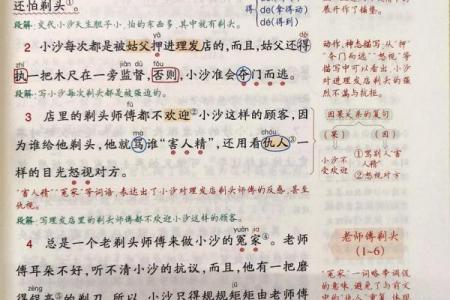 还怕剃头。
段解:交代小沙天生胆子小,怕的东西多,其中就有剃头。
得
dé(得到)
děi(得去)
展作作了铺垫。
2 小沙每次都是被姑父押进理发店的,而且,姑父还得
执一把木尺在一旁监督,否则,小沙准会夺门而逃。
段解:写小沙每次剃头都是被强迫的。
3 店里的剃头师傅都不欢迎②小沙这样的顾客,因
为谁给他剃头,他就骂谁“害人精”,还用看仇人③一
样的目光怒视对方。
“害人精”“冤家”等词语,表达出了小沙对理发店剃头师傅的反感,甚至
仇视。
段解:写理发店里的剃头师傅都不欢迎小沙这样的顾客。
4 总是一个老剃头师傅来做小沙的冤家④。老师
傅耳朵不好,听不清小沙的抗议,而且,他有一把老
得很高的剃刀,所以,小沙只得规规矩矩由老师傅
动作、神态描写:从“押”
“夺门而逃”“怒视”等
描写中可以看出,小沙
对进理发店剃头的强
烈不满与抗拒。
因果关系的复句
(果) (因)
小沙不
受欢迎
①骂别人“害
人精”
②怒视对方
老师傅剃头
(1~6)
“冤家”一词略带调侃
的意味,避免了与前文